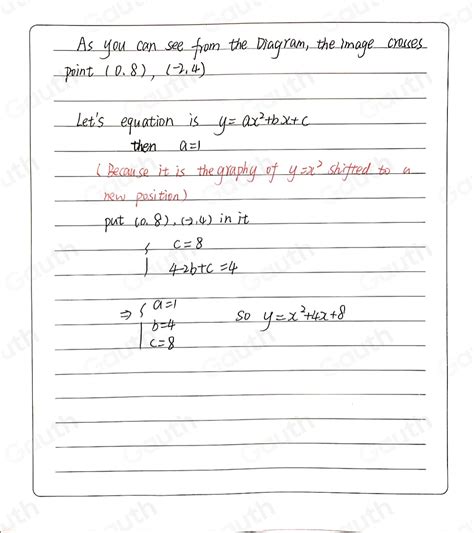 As you can see from the Diagram, the image crosses
point (0.8), (-2,4)
Let's equation is y=ax²+bx+c
then a=1
(Because it is the graphy of y=x² shifted to a
new position)
put (0.8), (-2.4) in it
{ c=8
4-2b+c=4
⇒ { a=1
b=4
c=8
so y=x²+4x+8
Gauth